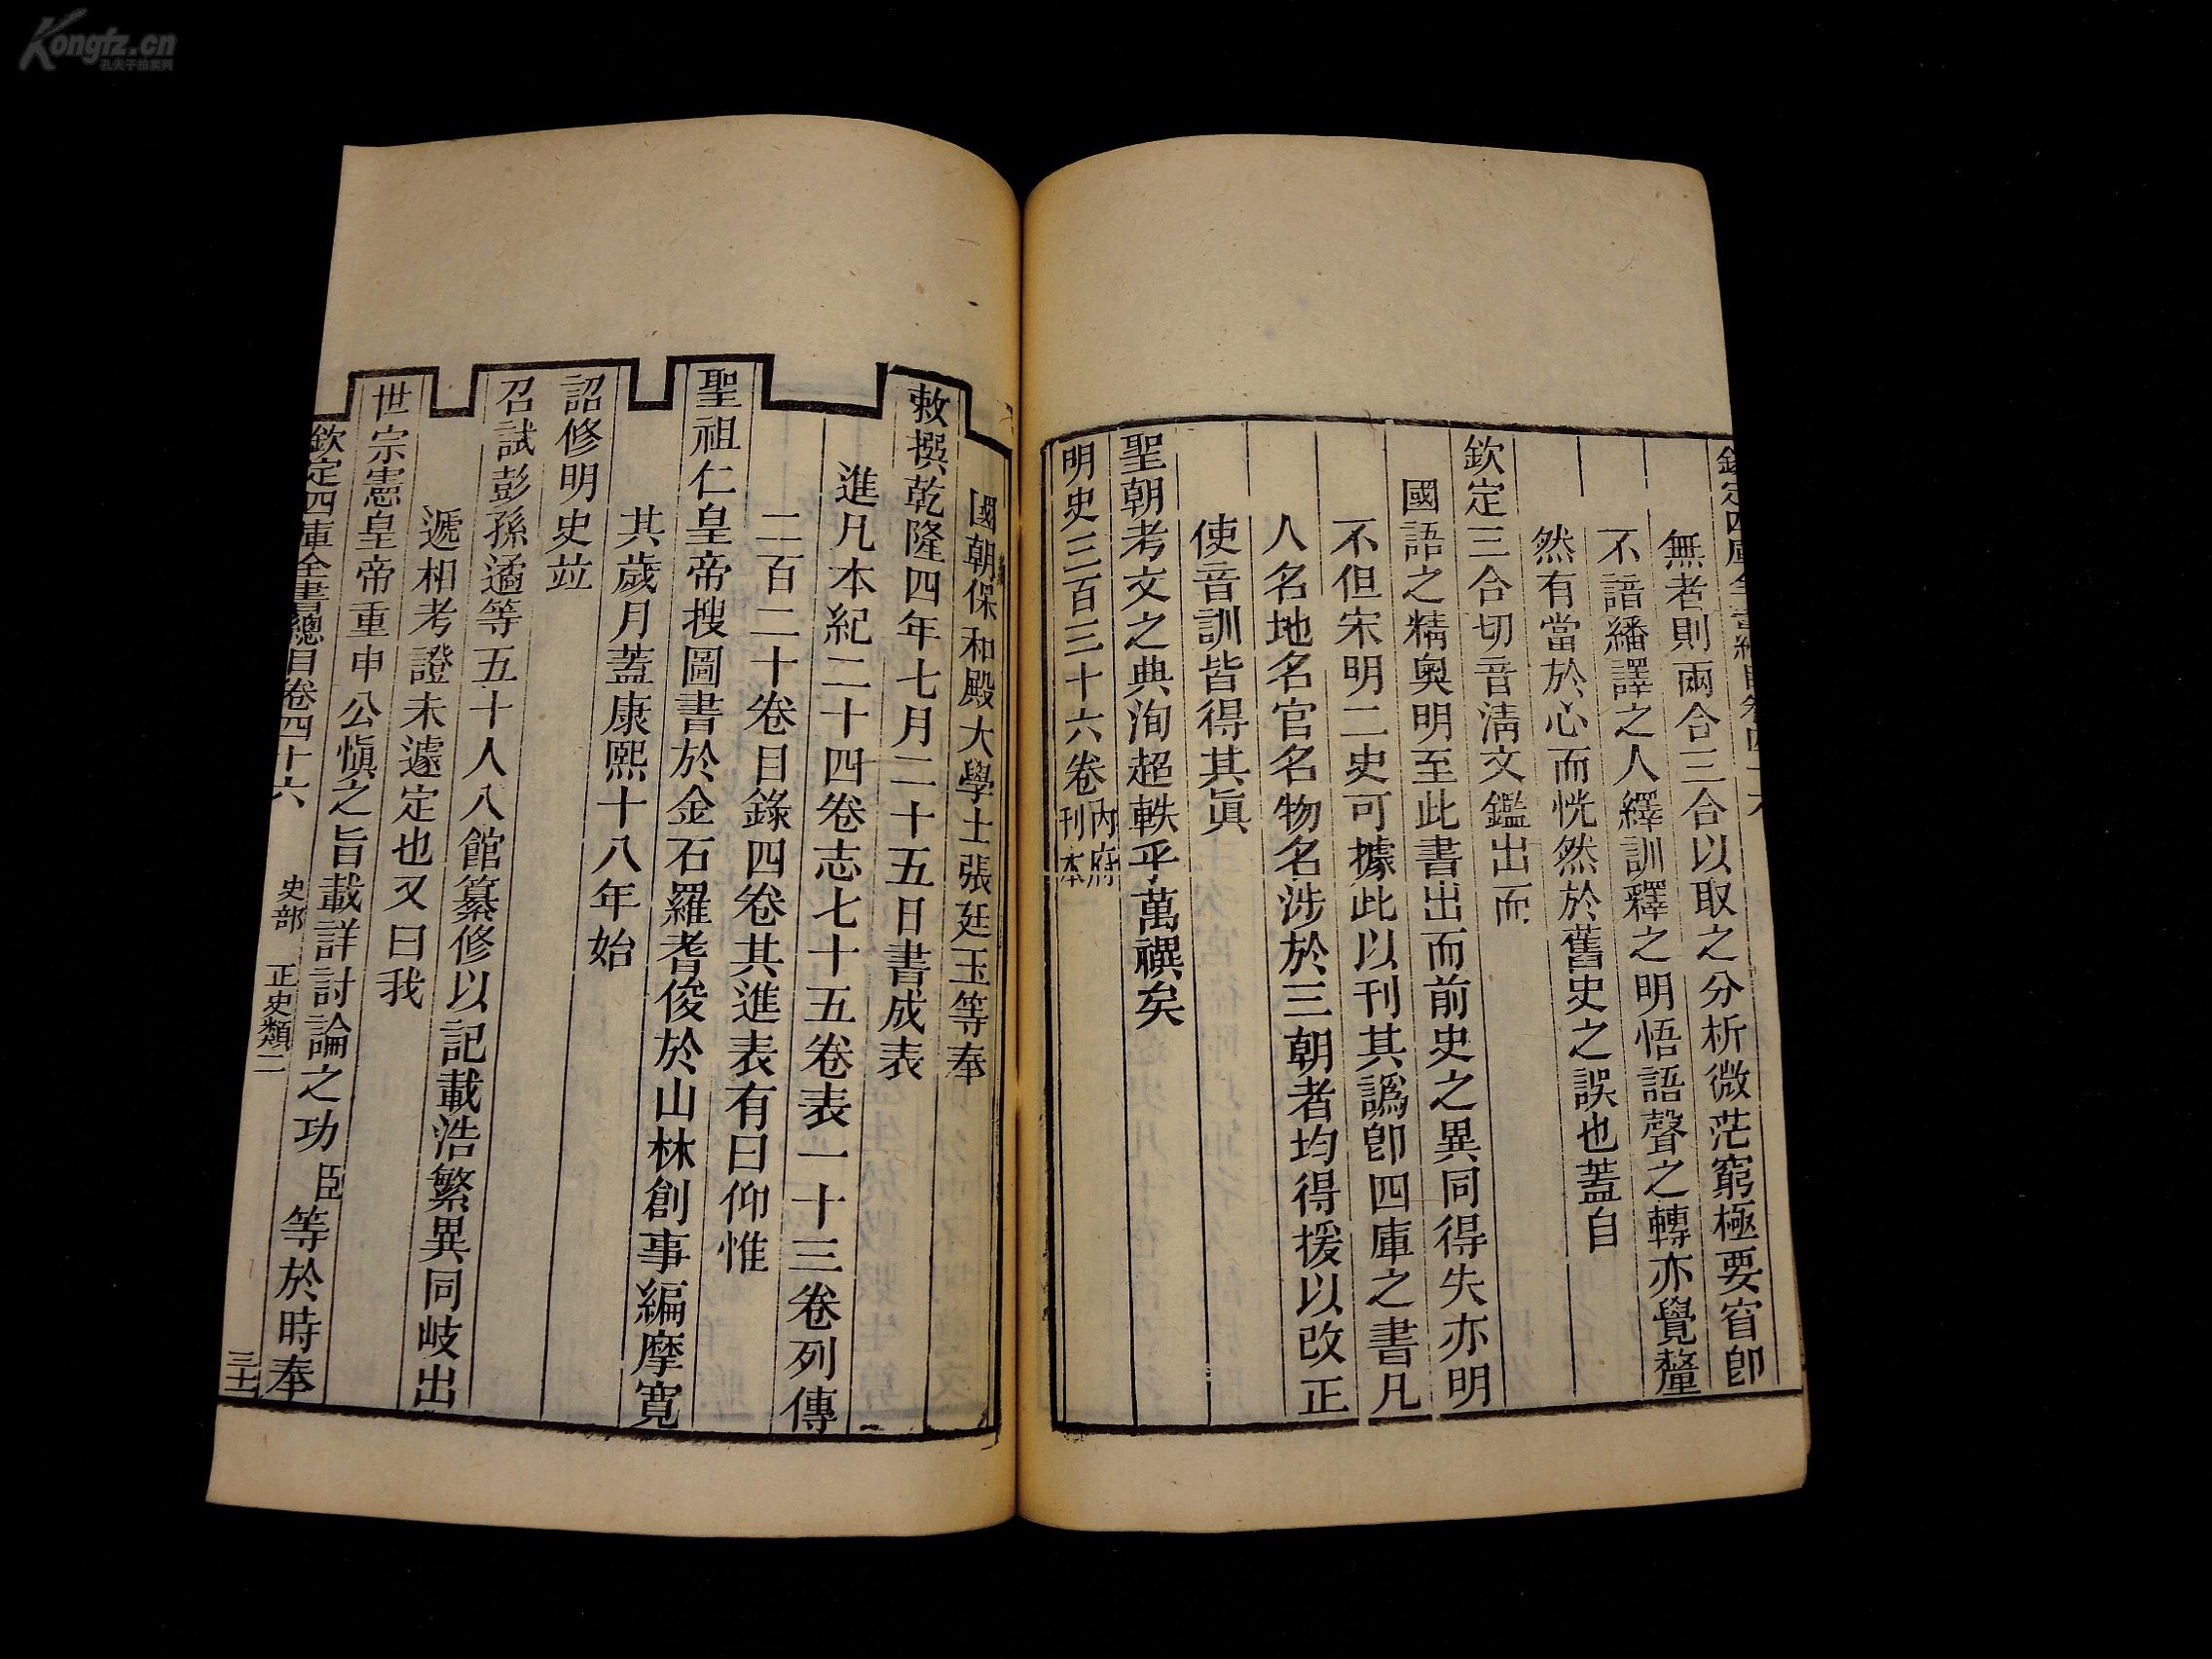 Kongfz.cn
孔夫子拍卖网
無者則兩合三合以取之分析微茫窮極要窅卽
不諳繙譯之人繹訓釋之明悟語聲之轉亦覺釐
然有當於心而恍然於舊史之誤也蓋自
欽定三合切音淸文鑑出而
國語之精奧明至此書出而前史之異同得失亦明
不但宋明二史可據此以刊其譌卽四庫之書凡
人名地名官名物名涉於三朝者均得援以改正
使音訓皆得其眞
聖朝考文之典洵超軼乎萬禩矣
明史三百三十六卷內府刊本
國朝保和殿大學士張廷玉等奉
敕撰乾隆四年七月二十五日書成表
進凡本紀二十四卷志七十五卷表一十三卷列傳
二百二十卷目錄四卷其進表有曰仰惟
聖祖仁皇帝搜圖書於金石羅耆俊於山林創事編摩寬
其歲月蓋康熙十八年始
詔修明史竝
召試彭孫遹等五十人入館纂修以記載浩繁異同岐出
遞相考證未遽定也又曰我
世宗憲皇帝重申公愼之旨載詳討論之功臣等於時奉
欽定四庫全書總目卷四十六 史部 正史類二 三十